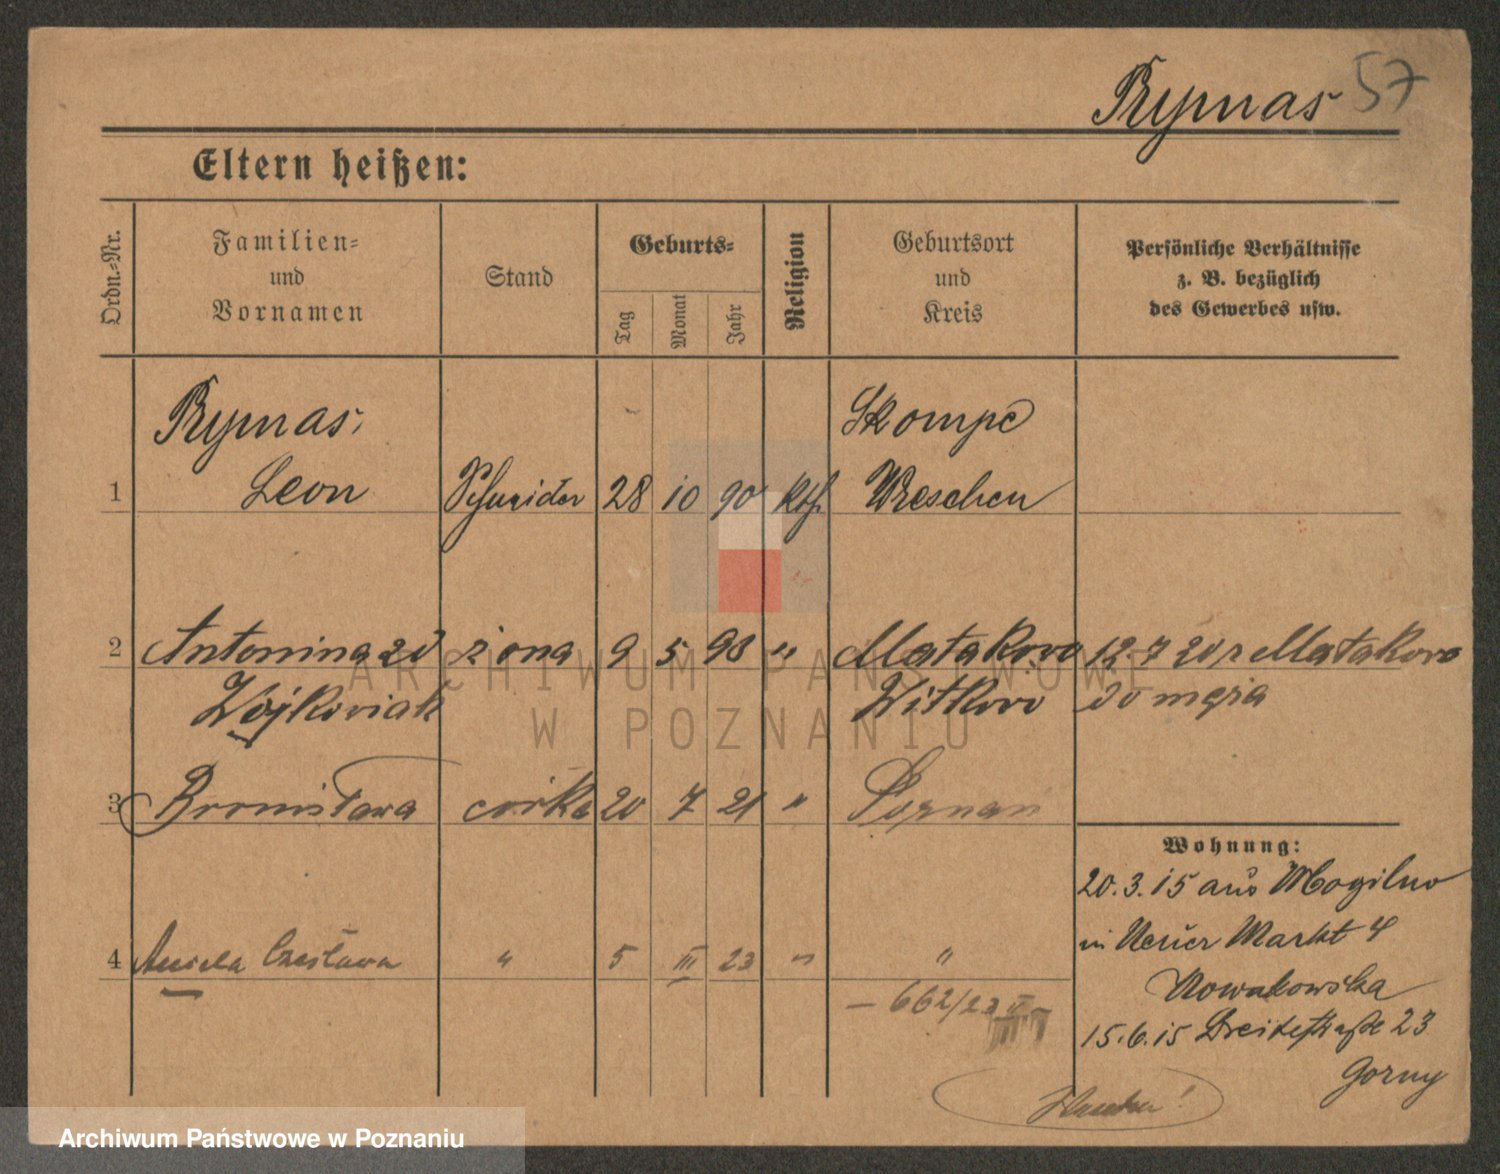 Rymas 57
Eltern heißen:
Ordn.-Nr.
Familien-
und
Vornamen
Stand
Geburts-
Tag
Monat
Jahr
Religion
Geburtsort
und
Kreis
Persönliche Verhältnisse
z. B. bezüglich
des Gewerbes usw.
Rymas,
Skompe
1 Leon Schneider 28 10 90 kth. Wreschen
2 Antonina zd żona 9 5 98 " Matakowo 12 7 20 z Matakowo
Wojkowiak Witkowo do męża
3 Bronisława córka 20 7 21 " Poznań
Wohnung:
20.3.15 aus Mogilno
in Neuer Markt 4
4 Aniela Czesława " 5 III 23 " "
Nowakowska
— 662/23 II
15.6.15 Breitestraße 23
Gorny
ARCHIWUM PAŃSTWOWE
W POZNANIU
Archiwum Państwowe w Poznaniu